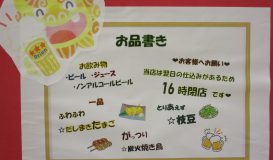 お品書き
お飲み物
・ビール ・ジュース
・ノンアルコールビール
一品
ふわふわ
☆だしまきたまご
がっつり
☆炭火焼き鳥
❤お客様へお願い❤
当店は翌日の仕込みがあるため
16時閉店 です❤
とりあえず
☆枝豆